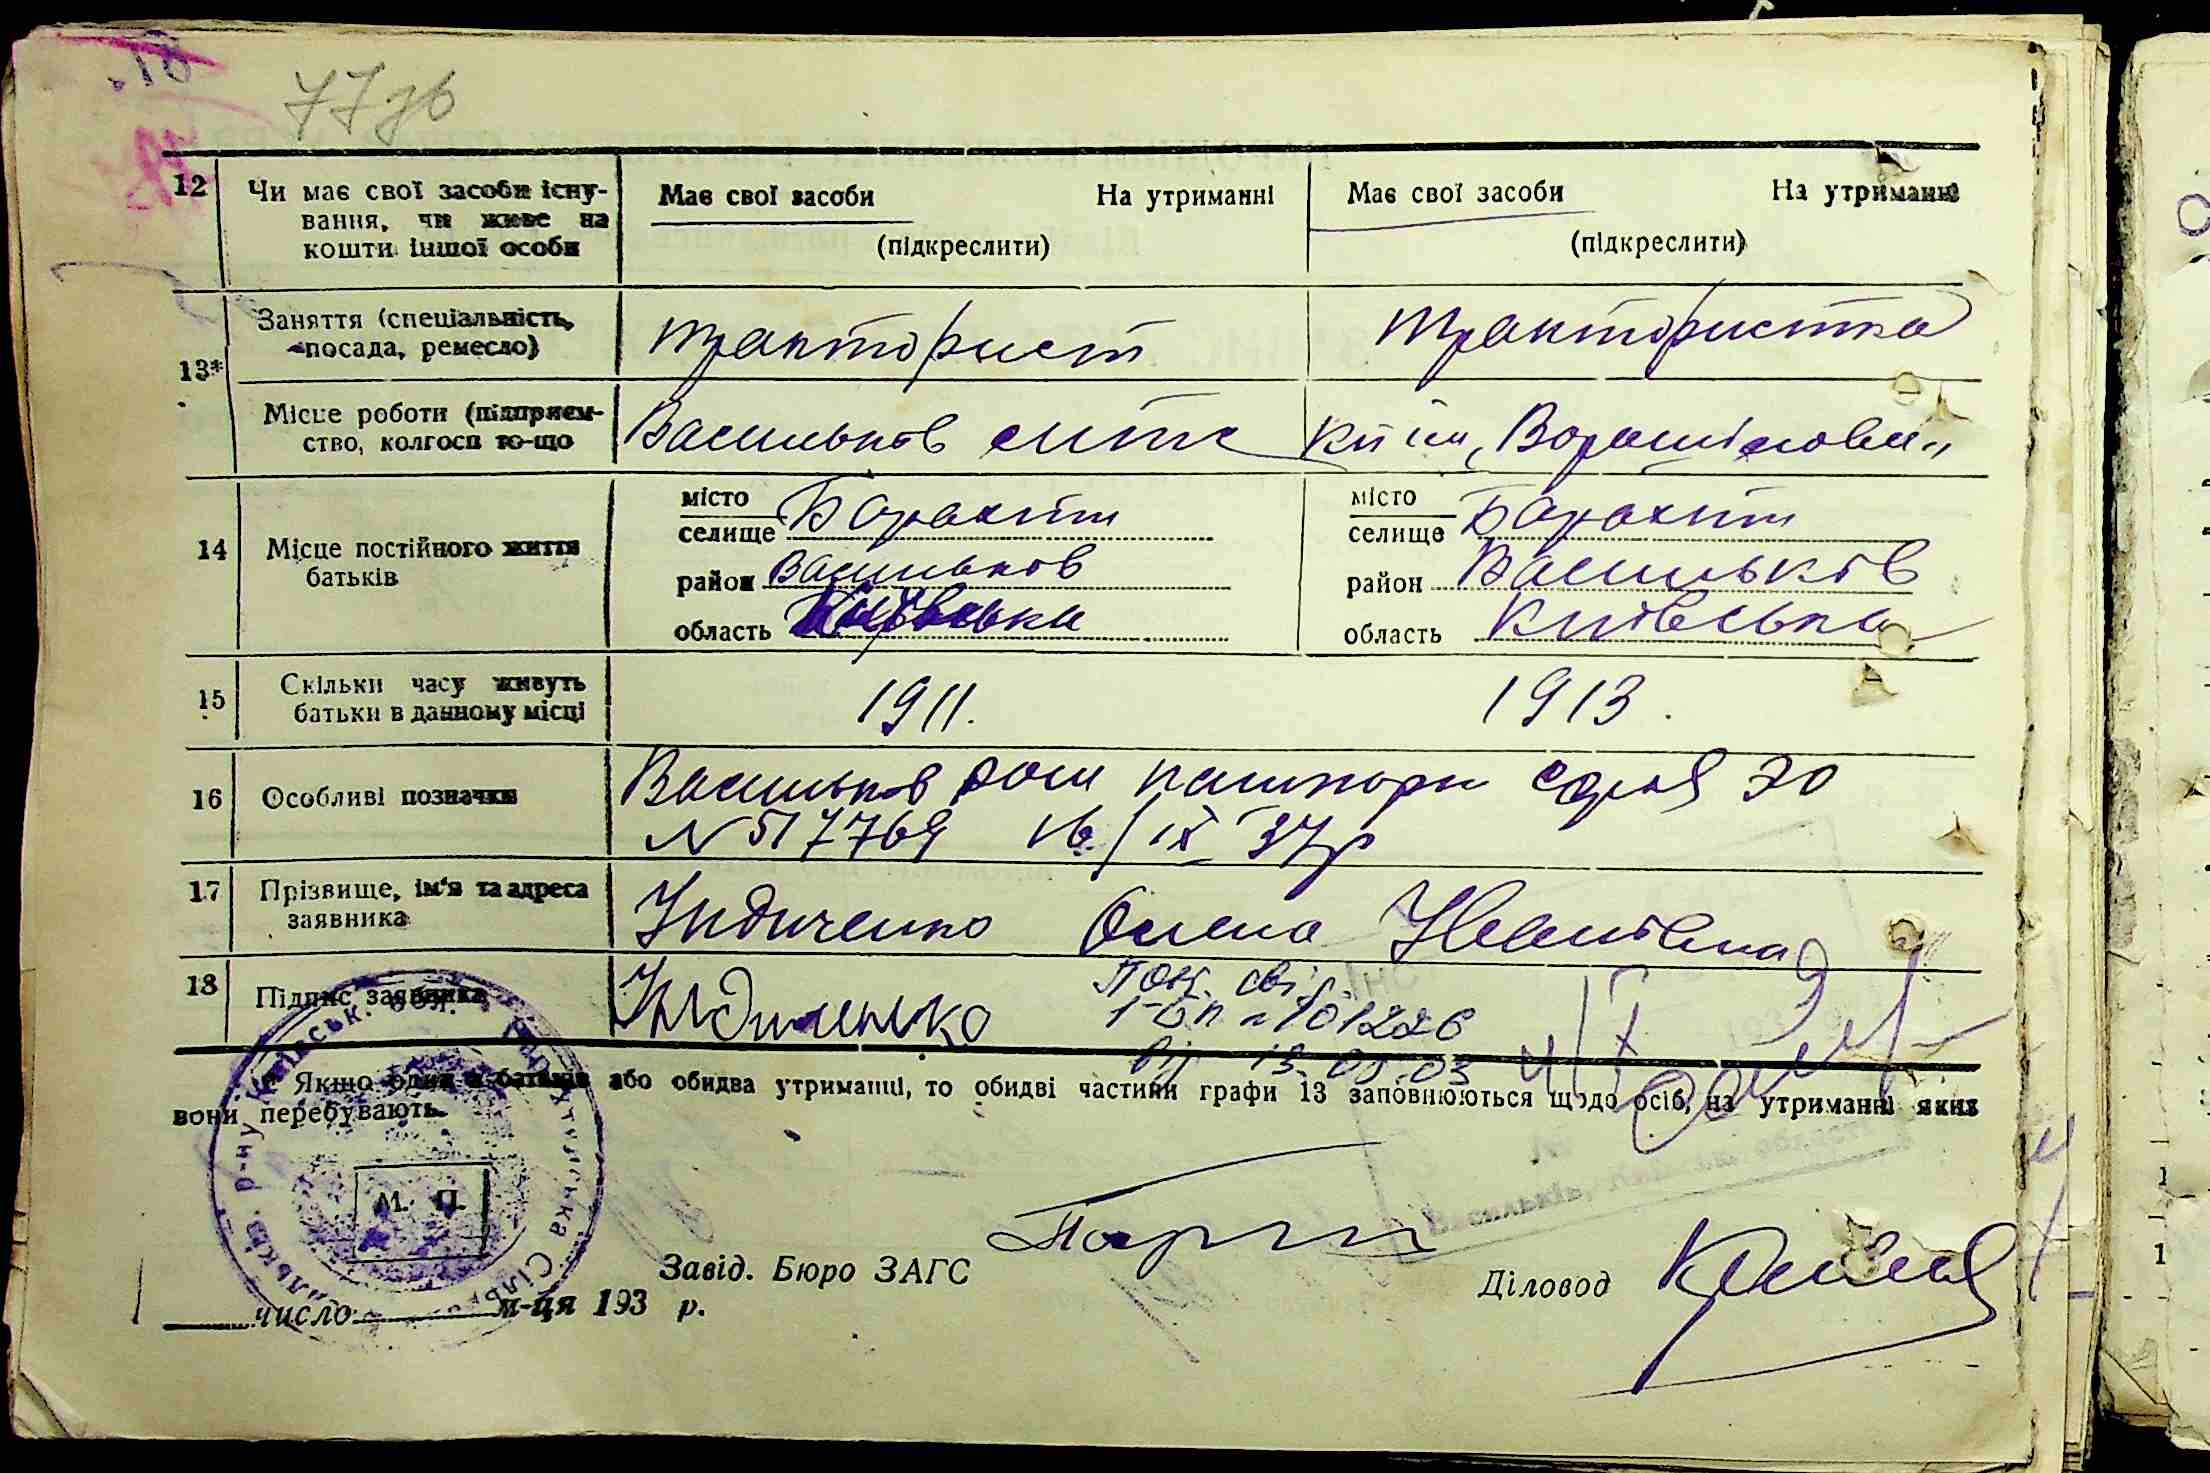 77зв
12 Чи має свої засоби існу-
вання, чи живе на
кошти іншої особи
Має свої засоби На утриманні
(підкреслити)
Має свої засоби На утриманні
(підкреслити)
13* Заняття (спеціальність,
посада, ремесло)
тракторист
трактористка
Місце роботи (підприєм-
ство, колгосп то-що
Васильков
Ворошілова"
14 Місце постійного життя
батьків
місто
селище Барахти
район Васильков
область Київська
місто
селище Барахти
район Васильків
область Київська
15 Скільки часу живуть
батьки в данному місці
1911.
1913.
16 Особливі позначки
Васильков паспорт серія ЭО
N 517769 16/ІХ 37р
17 Прізвище, ім'я та адреса
заявника
Індиченко Олена
18 Підпис заявника
Пов. свід.
1-БП №101226
від 13.05.03
* Якщо один з батьків або обидва утриманці, то обидві частини графи 13 заповнюються щодо осіб, на утриманні яких
вони перебувають.
М. П.
Завід. Бюро ЗАГС
Діловод
число м-ця 193 р.